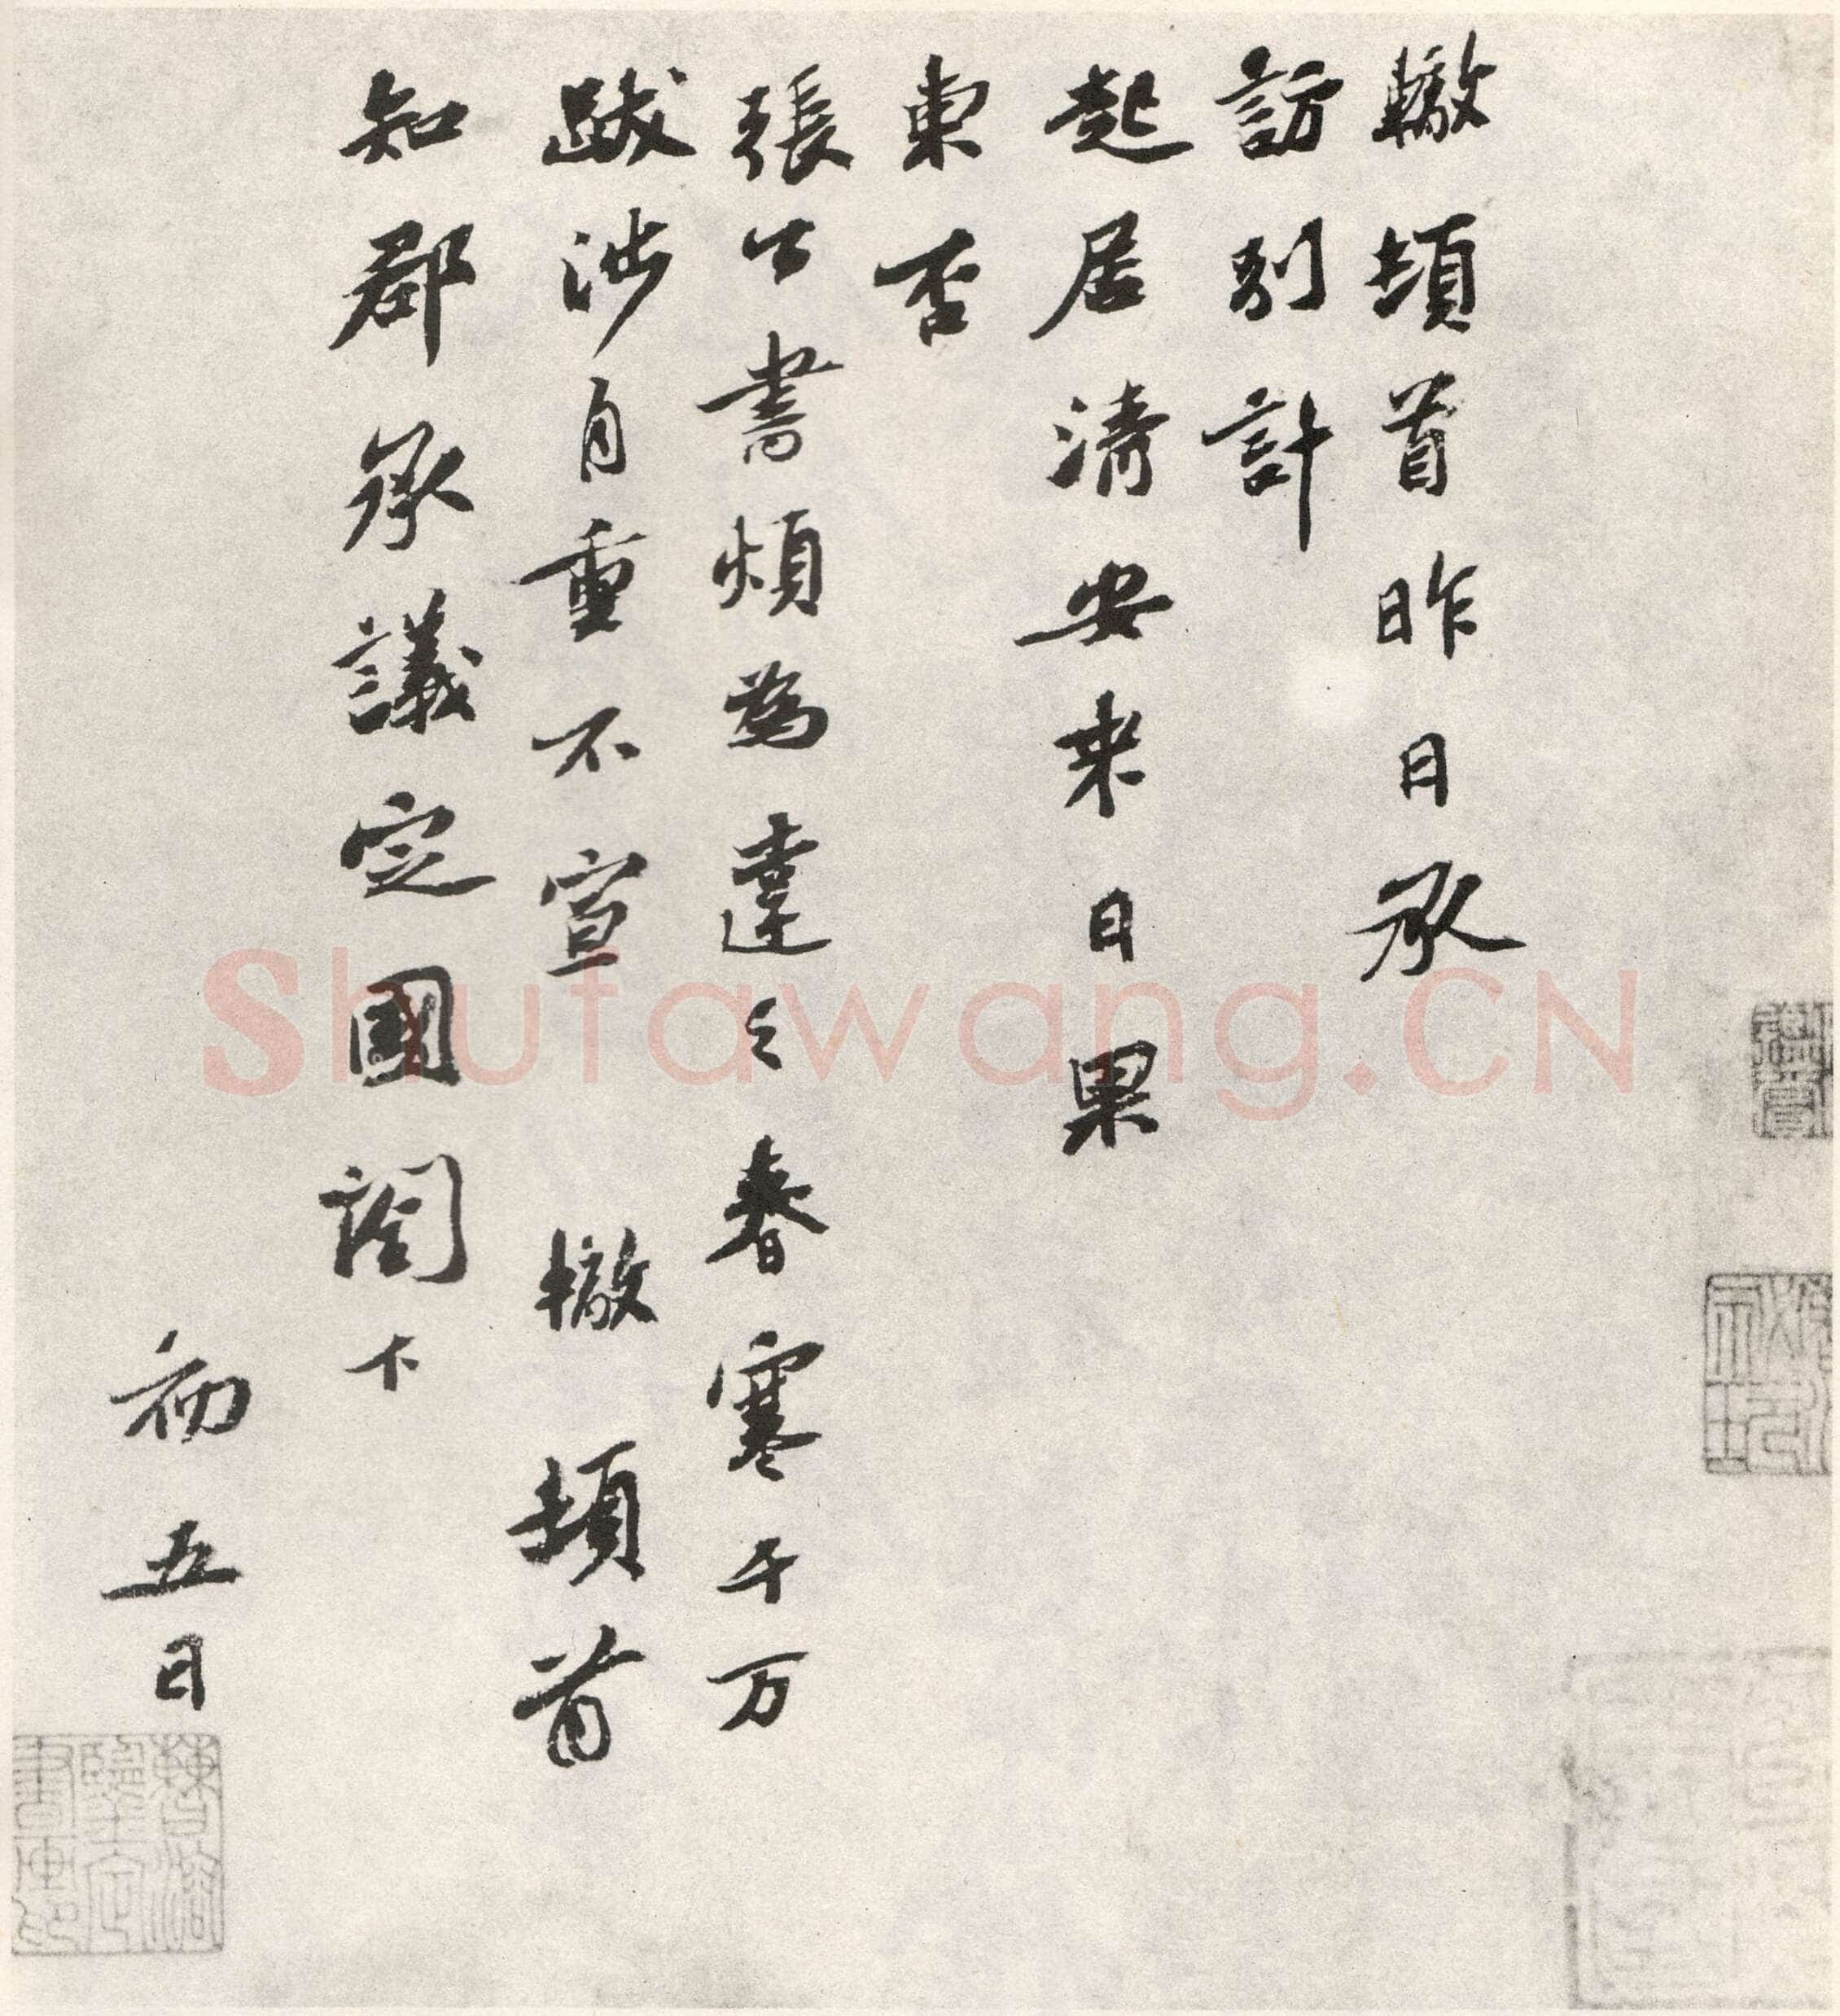 轍頓首昨日承
訪別計
起居清安来日果
東否
張公書煩為達之春寒千万
跋涉自重不宣 轍頓首
知郡承議定國閤下
初五日
Shufawang.CN